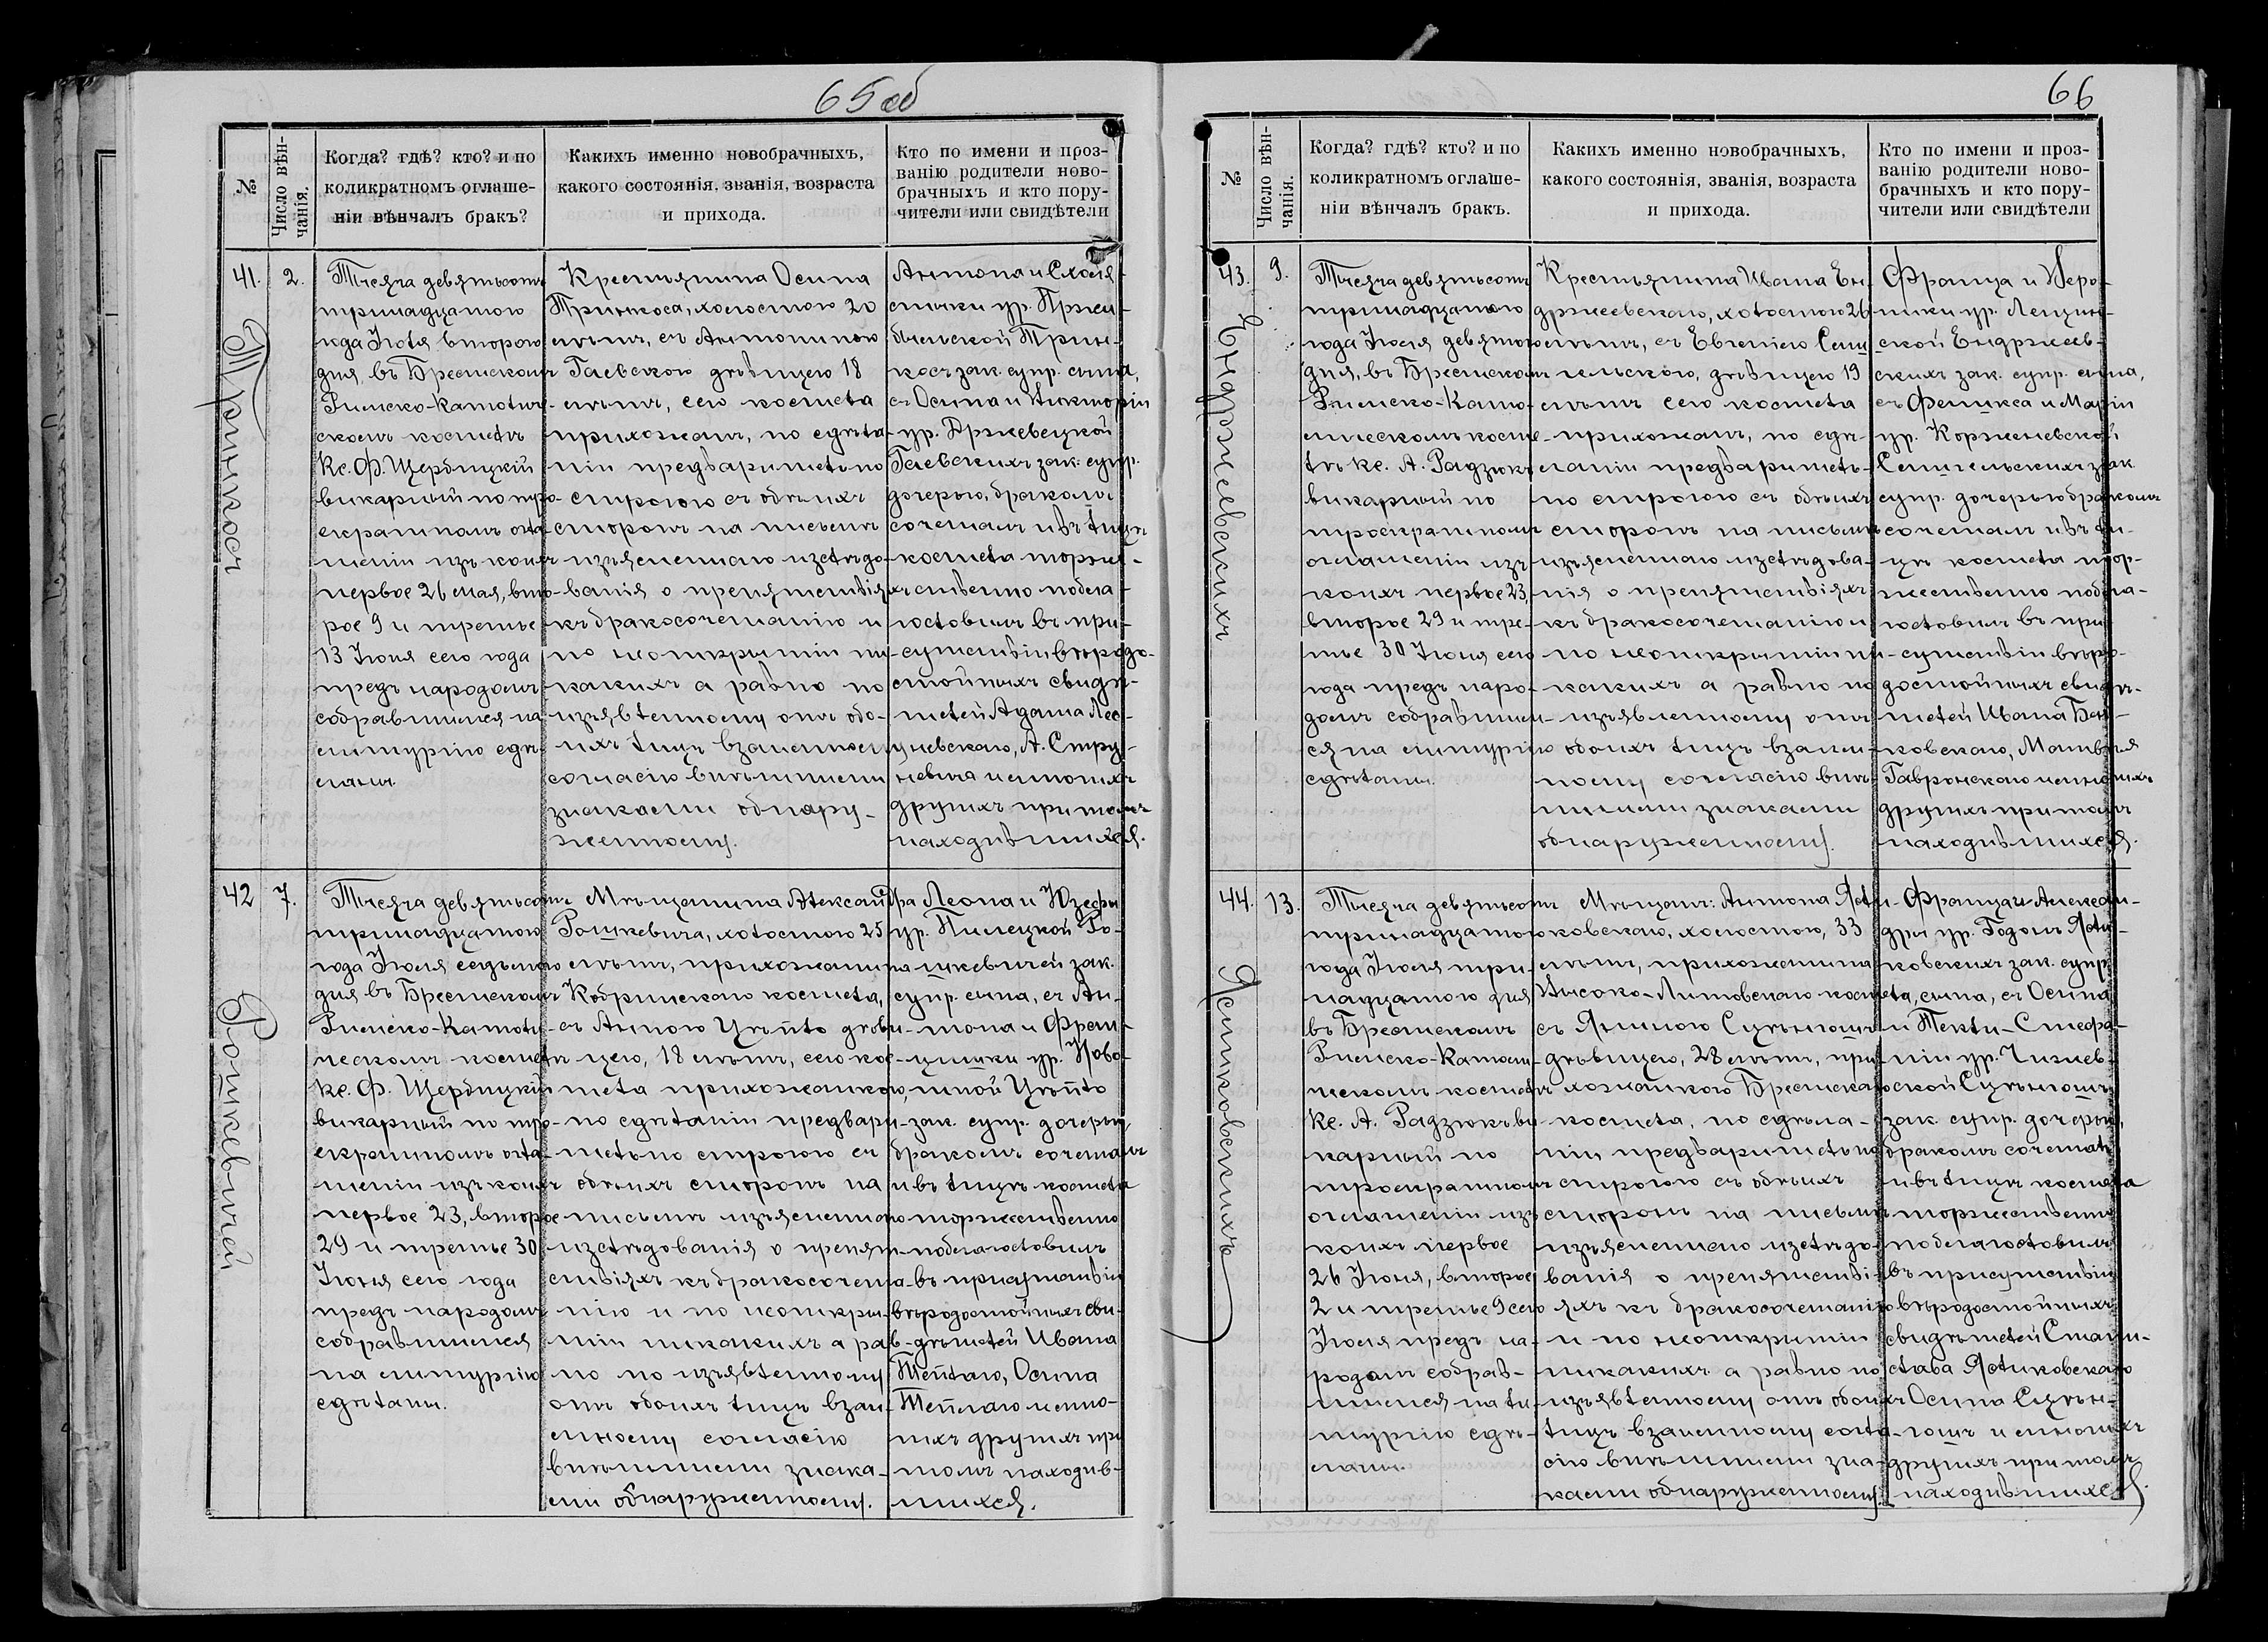 65 об
№
Число вѣн-
чанія.
Когда? гдѣ? кто? и по
коликратномъ оглаше-
ніи вѣнчалъ бракъ?
Какихъ именно новобрачныхъ,
какого состоянія, званія, возраста
и прихода.
Кто по имени и проз-
ванію родители ново-
брачныхъ и кто пору-
чители или свидѣтели
41.
2.
Тринкосъ
Тысяча девятьсотъ
тринадцатого
года Іюля второго
дня, въ Брестскомъ
Римско-Католиче-
скомъ костелѣ
Кс. Ф. Щербицкій
викарный по тро-
екратномъ огла-
шеніи изъ коихъ
первое 26 мая, вто-
рое 9 и третье
13 Іюня сего года
предъ народомъ
собравшимся на
литургію сдѣ-
ланы.
Крестьянина Осипа
Тринкоса, холостого 20
лѣтъ, съ Антониною
Гаевскою дѣвицею 18
лѣтъ, сего костела
прихожанъ, по сдѣла-
ніи предварительно
строгого съ обѣихъ
сторонъ на письмѣ
изъясненнаго изслѣдо-
ванія о препятствіяхъ
къ бракосочетанію и
по неоткрытіи ни-
какихъ а равно по
изъявленному отъ обо-
ихъ лицъ взаимному
согласію внѣшними
знаками обнару-
женному.
Антона и Схола-
стики ур. Пржи-
быльской Трин-
косъ зак. супр. сына,
съ Осипа и Викторіи
ур. Држевецкой
Гаевскихъ зак. супр.
дочерью, бракомъ
сочеталъ и въ лицѣ
костела торже-
ственно побла-
гословилъ въ при-
сутствіи вѣродо-
стойныхъ свидѣ-
телей Адама Лес-
невскаго, А. Стру-
невича и многихъ
другихъ при томъ
находившихся.
42
7.
Рошкевичей
Тысяча девятьсотъ
тринадцатого
года Іюля седьмого
дня въ Брестскомъ
Римско-Католи-
ческомъ костелѣ
Кс. Ф. Щербицкій
викарный по тро-
екратномъ огла-
шеніи изъ коихъ
первое 23, второе
29 и третье 30
Іюня сего года
предъ народомъ
собравшимся
на литургію
сдѣланы.
Мѣщанина Александра
Рошкевича, холостого 25
лѣтъ, прихожанина
Кобринскаго костела,
съ Анною Цѣпло дѣви-
цею, 18 лѣтъ, сего кос-
тела прихожанкою,
по сдѣланіи предвари-
тельно строгого съ
обѣихъ сторонъ на
письмѣ изъясненнаго
изслѣдованія о препят-
ствіяхъ къ бракосочета-
нію и по неоткры-
тіи никакихъ а рав-
но по изъявленному
отъ обоихъ лицъ взаи-
мному согласію
внѣшними знака-
ми обнаруженному.
Леона и Юзефы
ур. Пилецкой Ро-
шкевичей зак.
супр. сына, съ Ан-
тона и Фран-
цишки ур. Ново-
 Цѣпло
зак. супр. дочерью
бракомъ сочеталъ
и въ лицѣ костела
торжественно
поблагословилъ
въ присутствіи
вѣродостойныхъ сви-
дѣтелей Ивана
Теплаго, Осипа
Теплаго и мно-
гихъ другихъ при
томъ находив-
шихся.
66
№
Число вѣн-
чанія.
Когда? гдѣ? кто? и по
коликратномъ оглаше-
ніи вѣнчалъ бракъ.
Какихъ именно новобрачныхъ,
какого состоянія, званія, возраста
и прихода.
Кто по имени и проз-
ванію родители ново-
брачныхъ и кто пору-
чители или свидѣтели
43.
9.
Ендржеевскихъ
Тысяча девятьсотъ
тринадцатого
года Іюля девятого
дня, въ Брестскомъ
Римско-Като-
лическомъ косте-
лѣ Кс. А. Радзюкъ
викарный по
троекратномъ
оглашеніи изъ
коихъ первое 23,
второе 29 и тре-
тье 30 Іюня сего
года предъ наро-
домъ собравшим-
ся на литургію
сдѣланы.
Крестьянина Ивана Ен-
држеевскаго, холостого 26
лѣтъ, съ Евгеніею Семи-
гельскою, дѣвицею 19
лѣтъ сего костела
прихожанъ, по сдѣ-
ланіи предваритель-
но строгого съ обѣихъ
сторонъ на письмѣ
изъясненнаго изслѣдова-
нія о препятствіяхъ
къ бракосочетанію и
по неоткрытіи ни-
какихъ а равно по
изъявленному отъ
обоихъ лицъ взаим-
ному согласію внѣ-
шними знаками
обнаруженному.
Франца и Веро-
ники ур. Лещин-
ской Ендржеев-
скихъ зак. супр. сына,
съ Феликса и Маріи
ур. Корженевской
Семигельскихъ зак.
супр. дочерью бракомъ
сочеталъ и въ ли-
цѣ костела тор-
жественно побла-
гословилъ въ при-
сутствіи вѣро-
достойныхъ свидѣ-
телей Ивана Бен-
ковскаго, Матвѣя
Гавронскаго и многихъ
другихъ при томъ
находившихся.
44.
13.
Ясликовскихъ
Тысяча девятьсотъ
тринадцатого
года Іюля три-
надцатого дня
въ Брестскомъ
Римско-Католи-
ческомъ костелѣ
Кс. А. Радзюкъ ви-
карный по
троекратномъ
оглашеніи изъ
коихъ первое
26 Іюня, второе
2 и третье 9 сего
Іюля предъ на-
родомъ собрав-
шимся на ли-
тургію сдѣ-
ланы.
Мѣщанъ: Антона Ясли-
ковскаго, холостого, 33
лѣтъ, прихожанина
Высоко-Литовскаго костела,
съ Яниною Сцѣнгошъ
дѣвицею, 28 лѣтъ, при-
хожанкою Брестскаго
костела, по сдѣла-
ніи предварительно
строгого съ обѣихъ
сторонъ на письмѣ
изъясненнаго изслѣдо-
ванія о препятстві-
яхъ къ бракосочетанію
и по неоткрытіи
никакихъ а равно по
изъявленному отъ обоихъ
лицъ взаимному согла-
сію внѣшними зна-
ками обнаруженному.
Франца и Алексан-
дры ур. Годонъ Ясли-
ковскихъ зак. супр.
сына, съ Осипа
и Текли-Стефа-
ніи ур. Чижев-
ской Сцѣнгошъ
зак. супр. дочерью,
бракомъ сочеталъ
и въ лицѣ костела
торжественно
поблагословилъ
въ присутствіи
вѣродостойныхъ
свидѣтелей Стани-
слава Ясликовскаго
Осипа Сцѣн-
гошъ и многихъ
другихъ при томъ
находившихся.